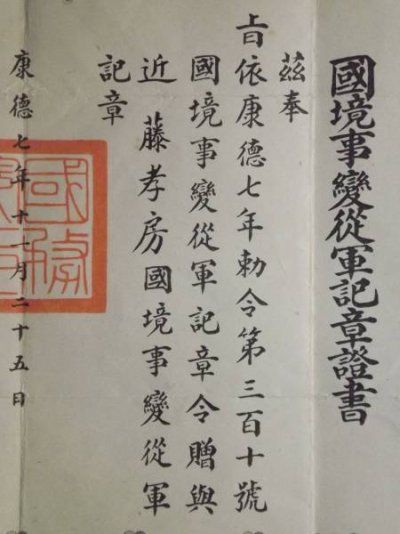 國境事變從軍記章證書
茲奉
旨依康德七年勅令第三百十號
國境事變從軍記章令贈與
近藤孝房國境事變從軍
記章
康德七年十一月二十五日
國務